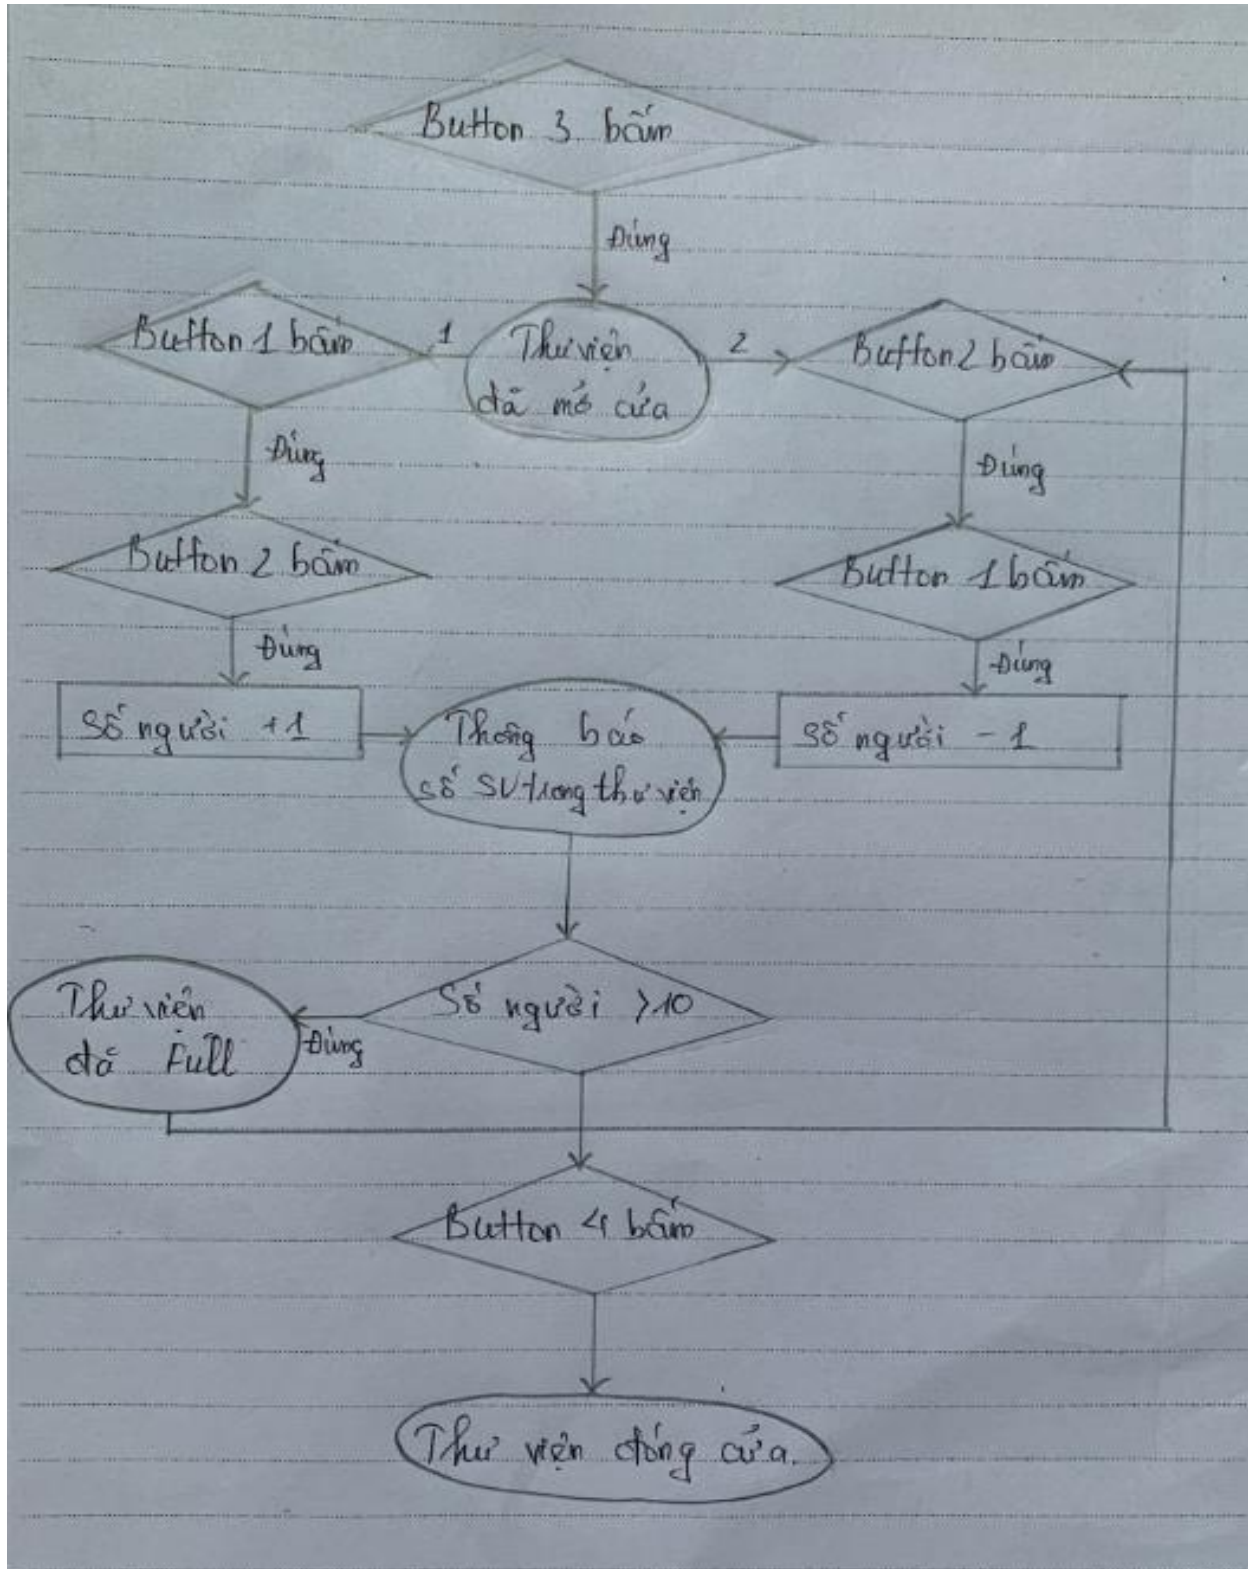 Button 3 bấm
Đúng
Button 1 bấm
1
Thư viện
đã mở cửa
2
Button 2 bấm
Đúng
Đúng
Button 2 bấm
Button 1 bấm
Đúng
Đúng
Số người +1
Thông báo
số SV trong thư viện
Số người - 1
Thư viện
đã Full
Đúng
Số người >10
Button 4 bấm
Thư viện đóng cửa.